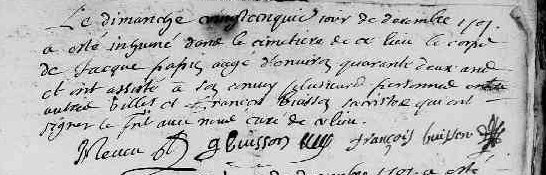 Le dimanche vingtcinquie jour de decembre 1701
a esté inhumé dans le cimetiere de ce lieu le corps
de Jacque papin aagé d'environ quarante deux ans
et ont assisté a son convoy plusieurs personnes entre
autres Gilles et François buisson sacristes qui ont
signer le prst avec nous curé de ce lieu.
g buisson françois buisson
decembre 1701 a esté